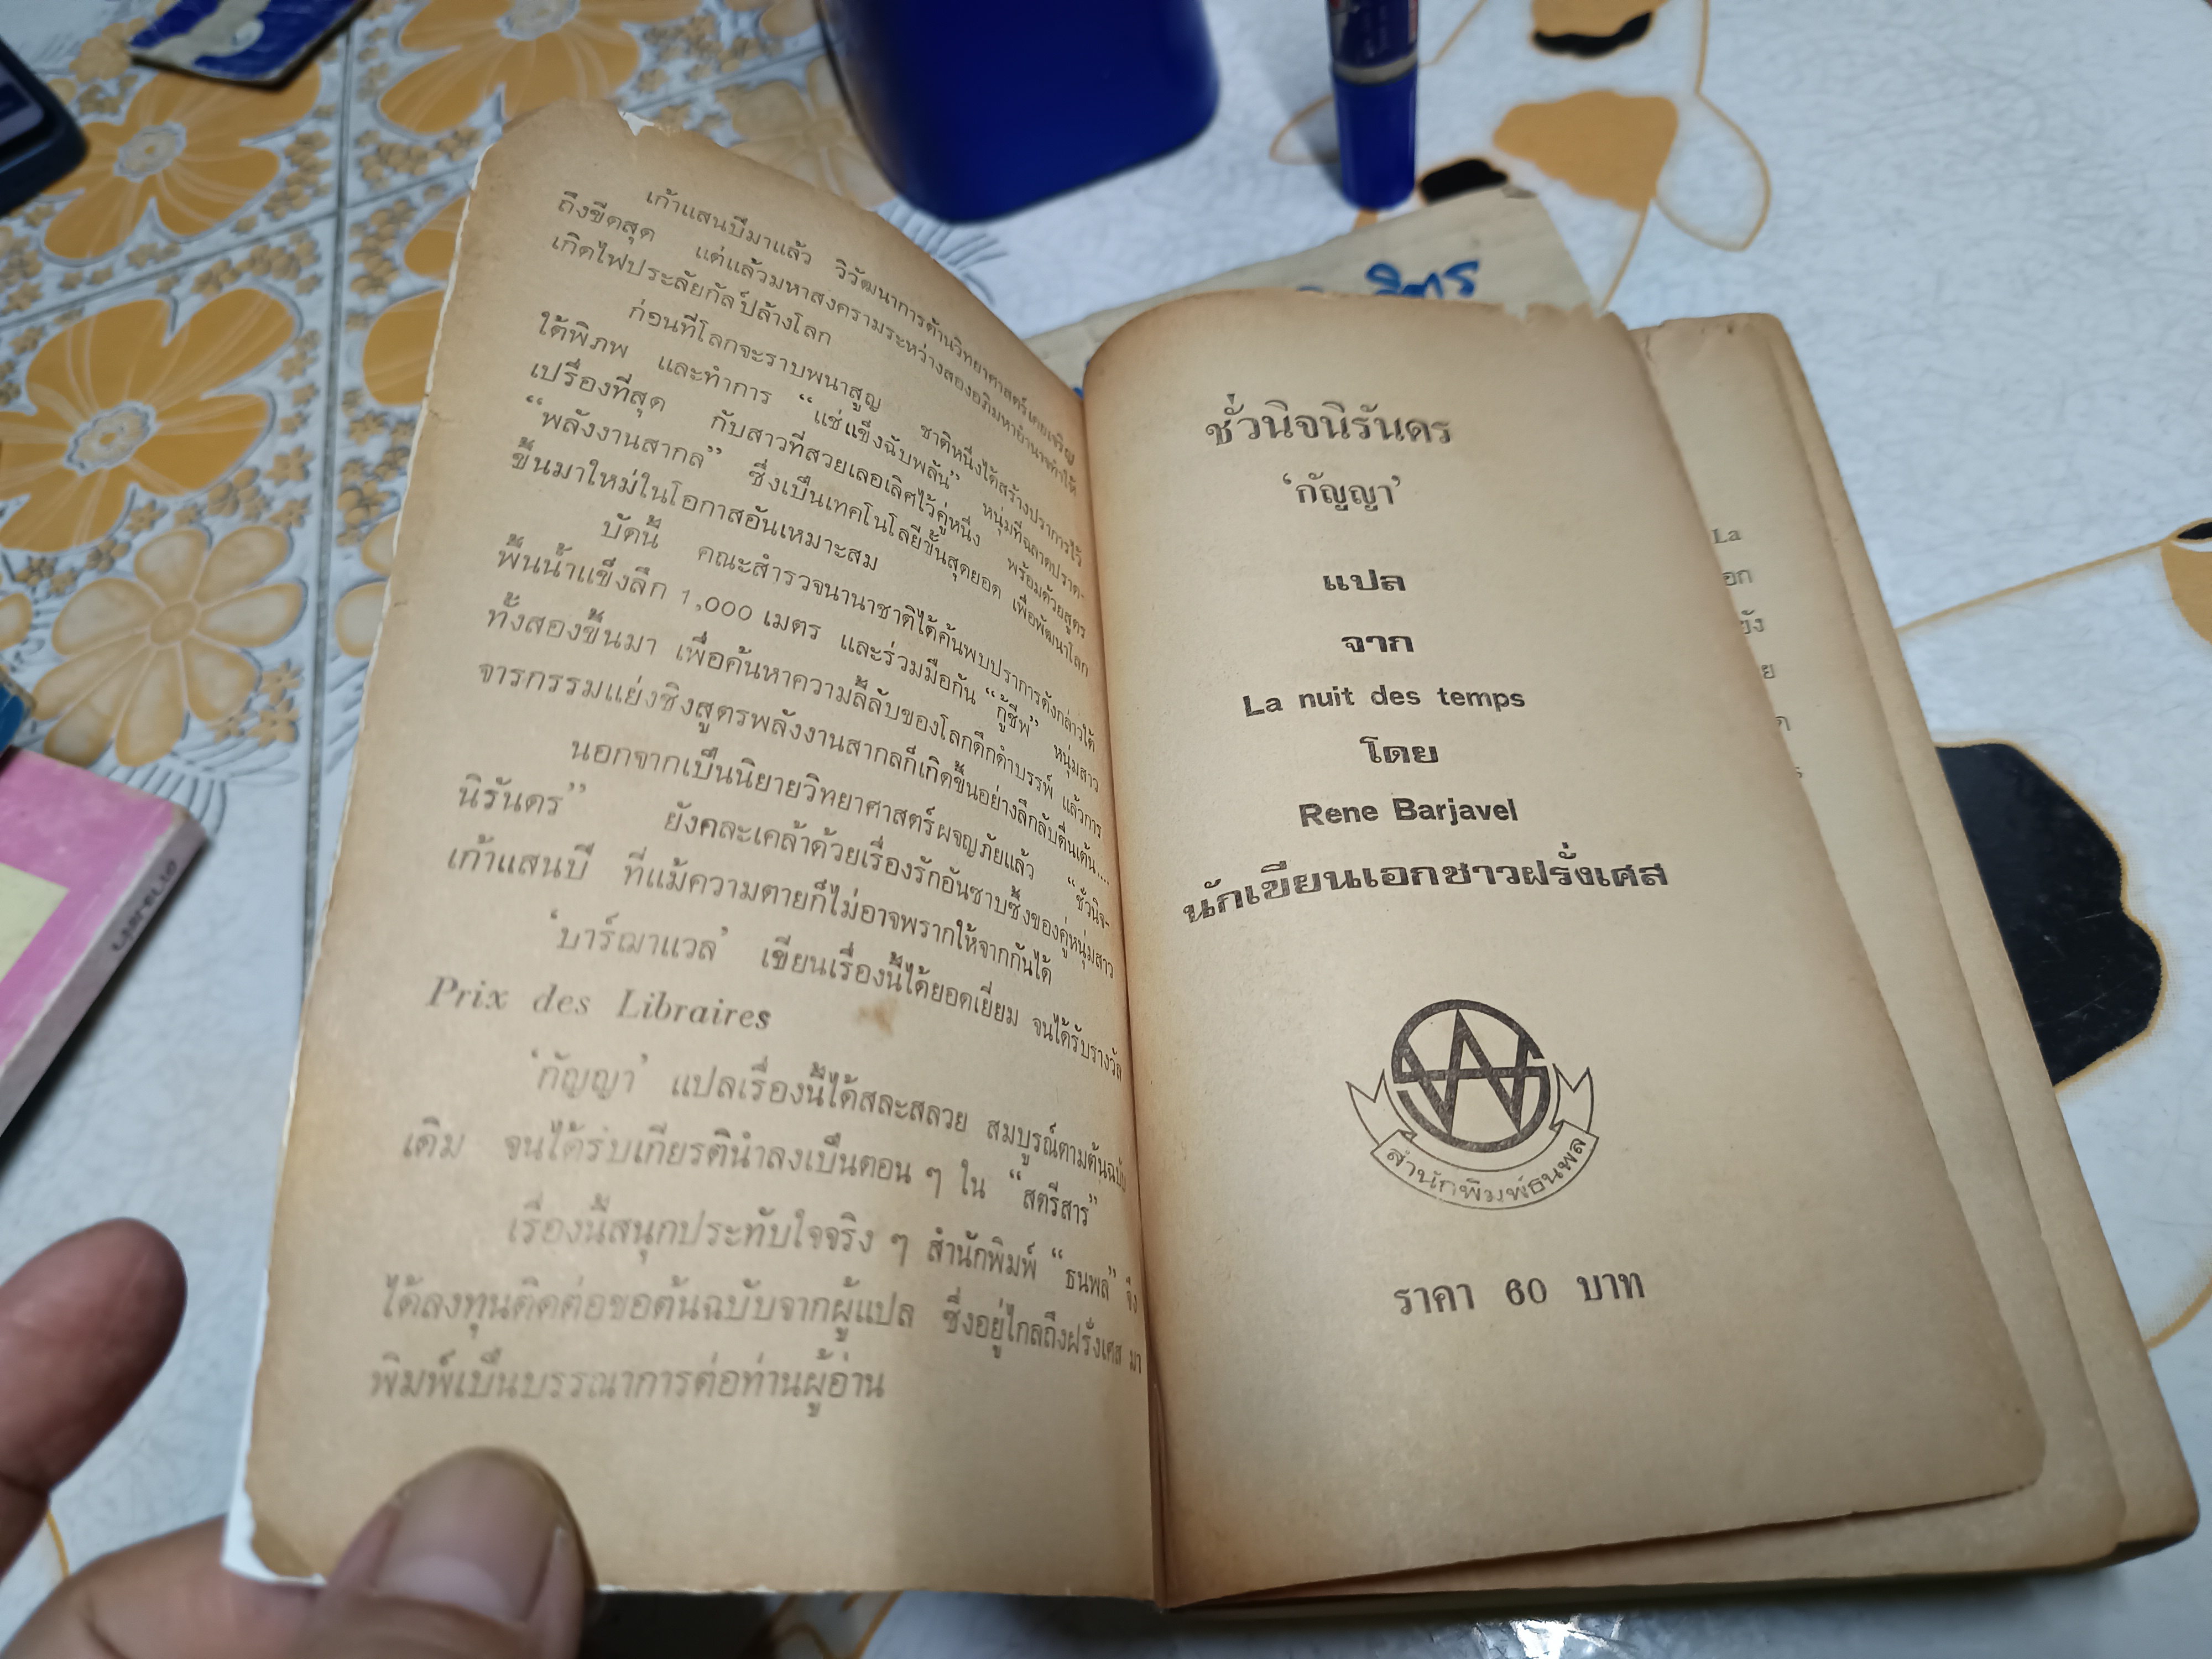 เก้าแสนปีมาแล้ว วิวัฒนาการด้านวิทยาศาสตร์เคยเจริญ
ถึงขีดสุด แต่แล้วมหาสงครามระหว่างสองอภิมหาอำนาจทำให้
เกิดไฟประลัยกัลป์ล้างโลก
ก่อนที่โลกจะราบพนาสูญ ชาติหนึ่งได้สร้างปราการไว้
ใต้พิภพ และทำการ “แช่แข็งฉับพลัน” หนุ่มที่ฉลาดปราด-
เปรื่องที่สุด กับสาวที่สวยเลอเลิศไว้คู่หนึ่ง พร้อมด้วยสูตร
“พลังงานสากล” ซึ่งเป็นเทคโนโลยีขั้นสุดยอด เพื่อพัฒนาโลก
ขึ้นมาใหม่ในโอกาสอันเหมาะสม
บัดนี้ คณะสำรวจนานาชาติได้ค้นพบปราการดังกล่าวใต้
พื้นน้ำแข็งลึก 1,000 เมตร และร่วมมือกัน “กู้ชีพ” หนุ่มสาว
ทั้งสองขึ้นมา เพื่อค้นหาความลี้ลับของโลกดึกดำบรรพ์ แล้วการ
จารกรรมแย่งชิงสูตรพลังงานสากลก็เกิดขึ้นอย่างลึกลับตื่นเต้น....
นอกจากเป็นนิยายวิทยาศาสตร์ผจญภัยแล้ว “ชั่วนิจ-
นิรันดร” ยังคละเคล้าด้วยเรื่องรักอันซาบซึ้งของคู่หนุ่มสาว
เก้าแสนปี ที่แม้ความตายก็ไม่อาจพรากให้จากกันได้
‘บาร์ฌาแวล’ เขียนเรื่องนี้ได้ยอดเยี่ยม จนได้รับรางวัล
Prix des Libraires
‘กัญญา’ แปลเรื่องนี้ได้สละสลวย สมบูรณ์ตามต้นฉบับ
เดิม จนได้รับเกียรตินำลงเป็นตอน ๆ ใน “สตรีสาร”
เรื่องนี้สนุกประทับใจจริง ๆ สำนักพิมพ์ “ธนพล” จึง
ได้ลงทุนติดต่อขอต้นฉบับจากผู้แปล ซึ่งอยู่ไกลถึงฝรั่งเศส มา
พิมพ์เป็นบรรณาการต่อท่านผู้อ่าน
ชั่วนิจนิรันดร
‘กัญญา’
แปล
จาก
La nuit des temps
โดย
Rene Barjavel
นักเขียนเอกชาวฝรั่งเศส
สำนักพิมพ์ธนพล
ราคา 60 บาท
La